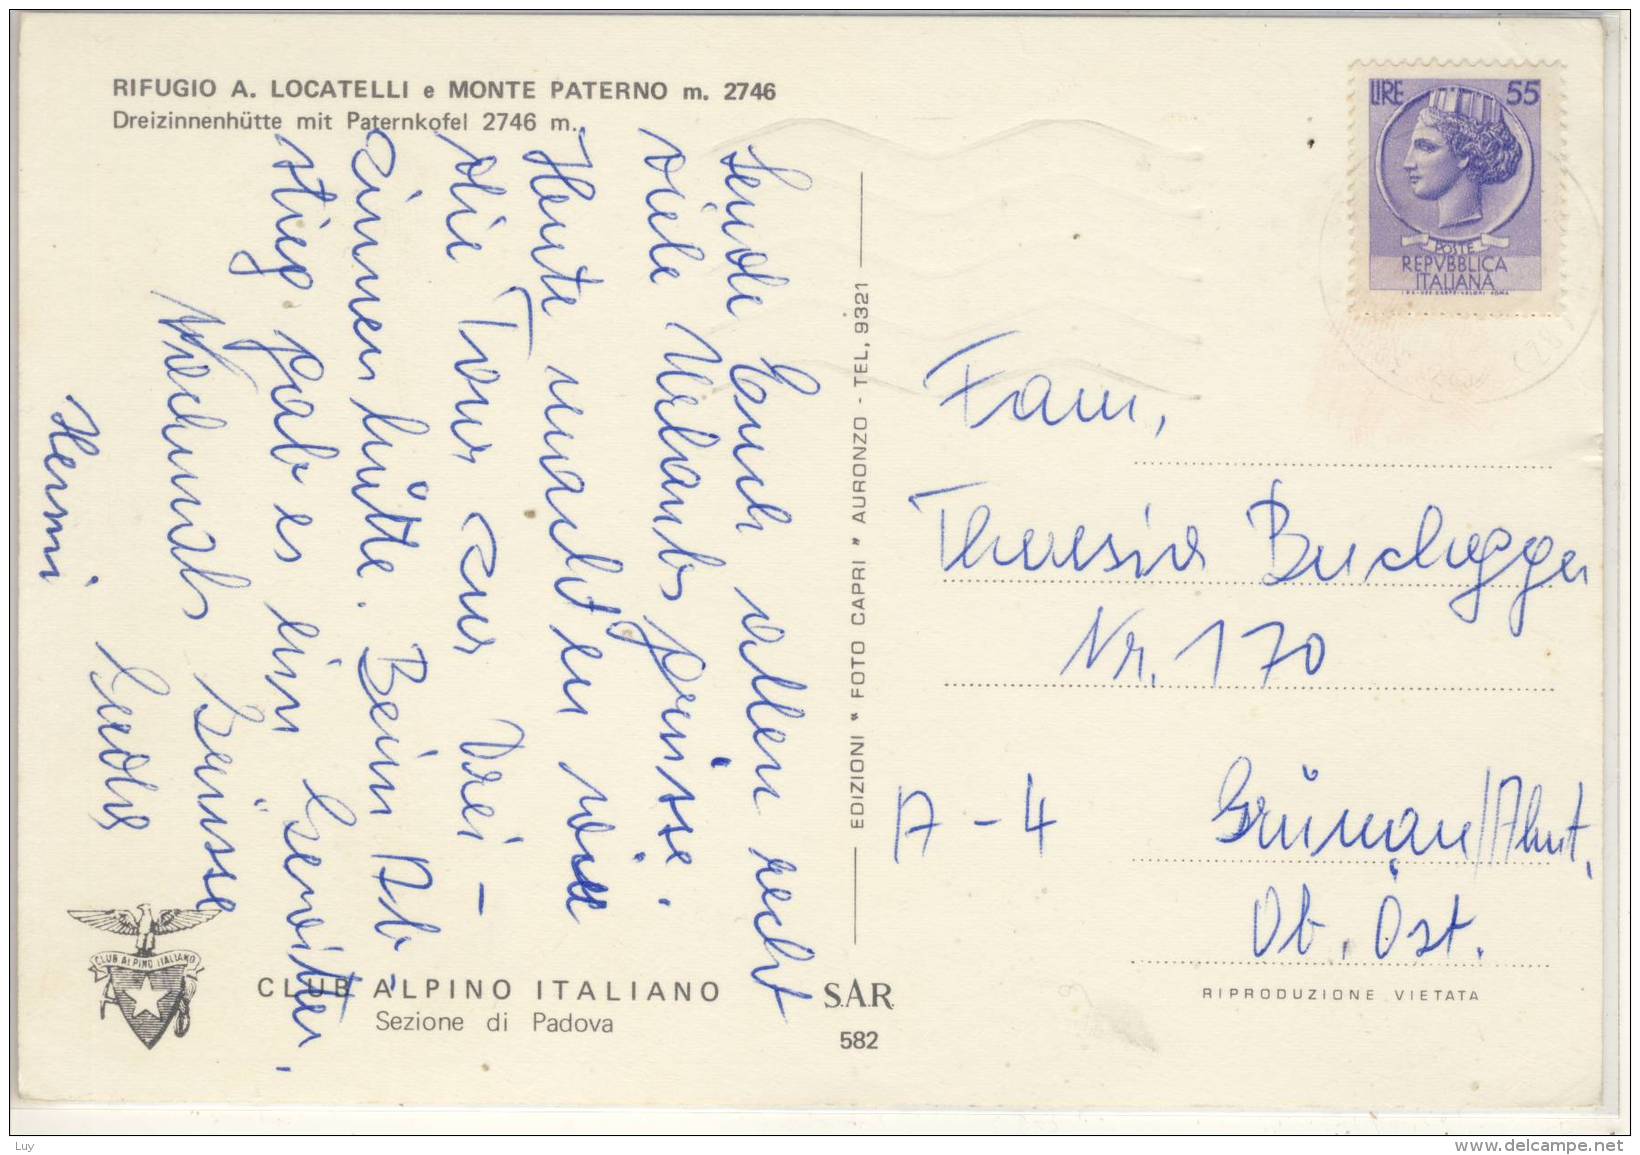 RIFUGIO A. LOCATELLI e MONTE PATERNO m. 2746
Dreizinnenhütte mit Paternkofel 2746 m.
Sende Euch allen recht
viele Urlaubsgrüsse.
Heute machten wir
die Tour zur Drei-
zinnenhütte. Beim Ab-
stieg gab es ein Gewitter.
Nochmals Grüsse
Hermi
CLUB ALPINO ITALIANO
CLUB ALPINO ITALIANO
Sezione di Padova
EDIZIONI " FOTO CAPRI " AURONZO - TEL. 9321
S.A.R.
582
LIRE 55
POSTE
REPVBBLICA
ITALIANA
Fam.
Theresia Buchegger
Nr. 170
A-4 Grünau/Almt.
Ob. Öst.
RIPRODUZIONE VIETATA
Luy
www.delcampe.net